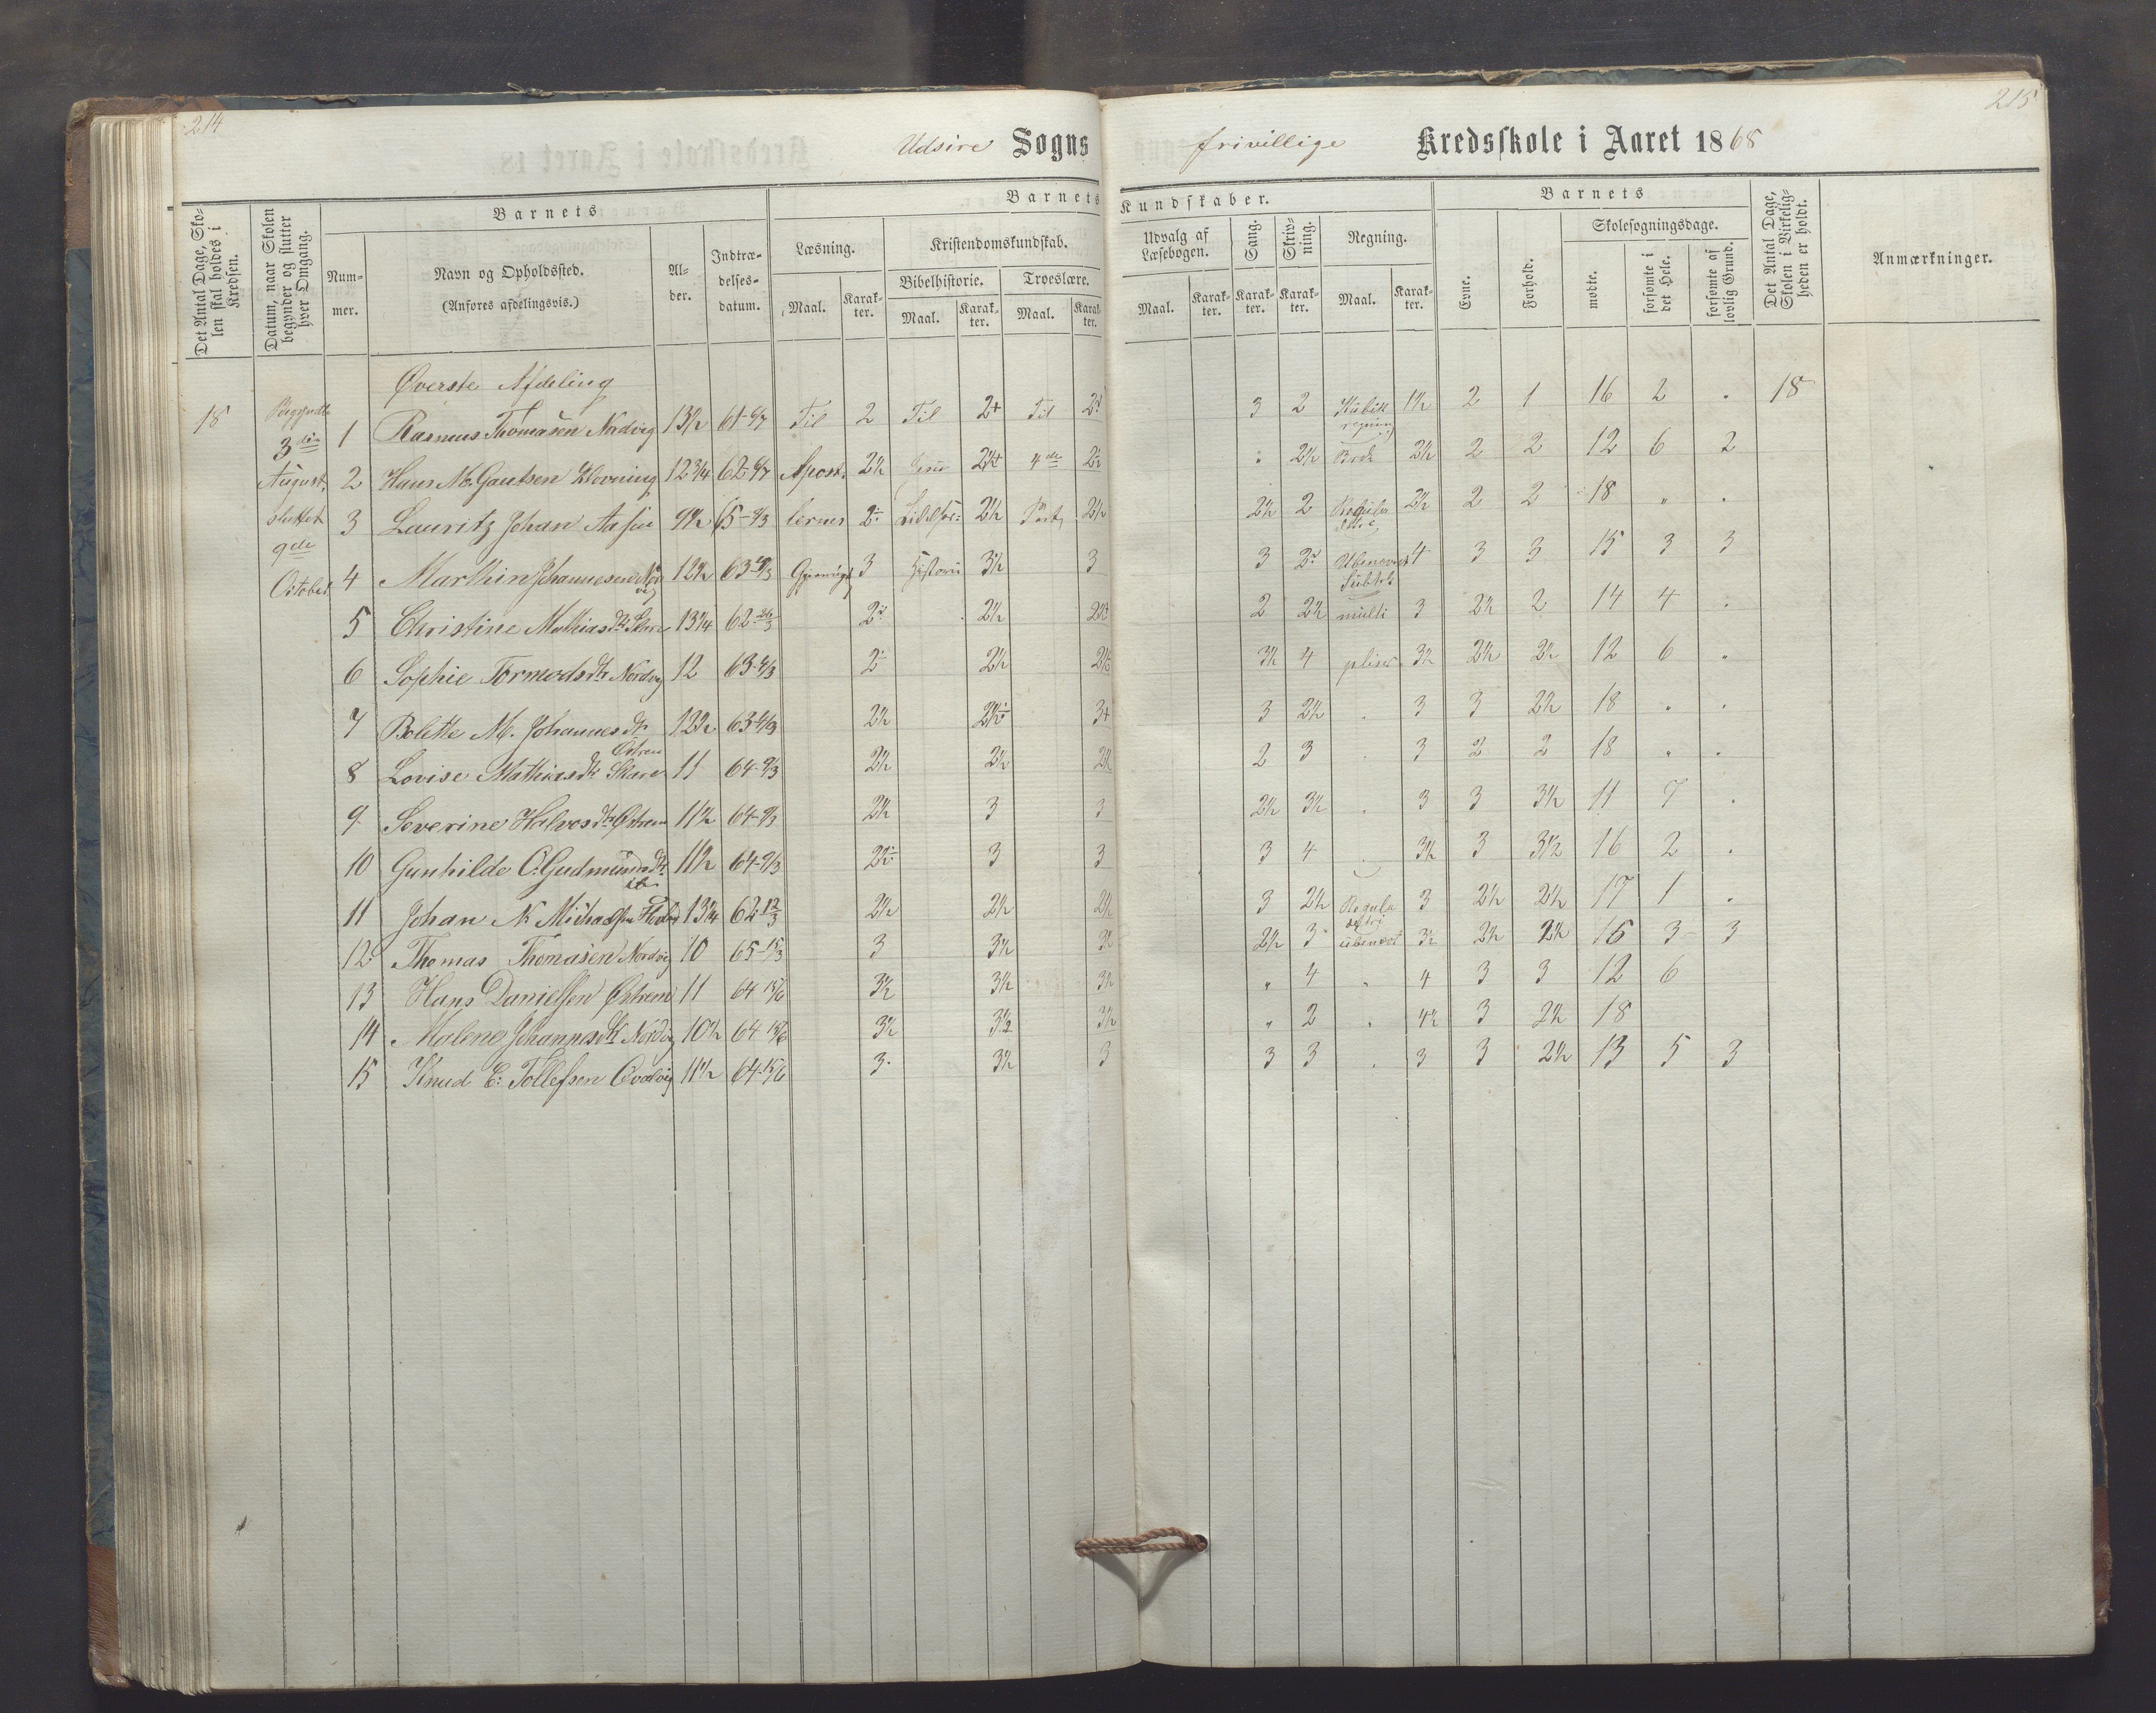 214
215
Udsire Sogns frivillige Kredsskole i Aaret 1868
Det Antal Dage, Skolen skal holdes i Kredsen.
Datum, naar Skolen begynder og slutter hver Omgang.
Barnets
Num-
mer.
Navn og Opholdssted.
(Anføres afdelingsvis.)
Al-
der.
Indtræ-
delses-
datum.
Barnets Kundskaber.
Læsning.
Kristendomskundskab.
Bibelhistorie.
Troeslære.
Maal.
Karak-
ter.
Maal.
Karak-
ter.
Maal.
Karak-
ter.
Udvalg af
Læsebogen.
Sang.
Skriv-
ning.
Regning.
Maal.
Karak-
ter.
Karak-
ter.
Karak-
ter.
Maal.
Karak-
ter.
Barnets
Evne.
Forhold.
Skolesøgningsdage.
mødte.
forsømte i
det Hele.
forsømte af
lovlig Grund.
Det Antal Dage,
Skolen i Virkelig-
heden er holdt.
Anmærkninger.
Øverste Afdeling
18
Begyndte
3die
August,
sluttet
9de
October
1 Rasmus Thomasen Nordvig 13½ 61-6/7 Til 2 Til 2+ Til 3 2 Kubik regning 1½ 2 1 16 2 . 18
2 Hans M. Gautsen Klovning 12¾ 62-6/7 Apost. 2½ Jesu 4de 2½ Brøk 2½ 2 2 12 6 2
3 Lauritz Johan Aasen 9½ lernes 2½ 2½ 2½ 2 Regula 2½ 2 2 18 " .
4 Marthin Johannesen Nordvig 12½ 3 Historie 3½ 3 3 Ubenævnt 4 3 3 15 3 3
5 Christine Mathiasdtr. Skare 13¼ 62-26/3 2½ 2 2½ Subtr. multi 3 2½ 2 14 4 .
6 Sophie Tormodsdtr Nordvig 12 2½ 3½ 4 plise 3½ 2½ 12 6 "
7 Bolette M. Johannesdtr Østrem 12½ 2½ 3+ 3 2½ . 3 3 2½ 18 " .
8 Lovise Mathiasdtr Skare 11 64-9/3 2½ 2½ 2½ 2 3 . 3 2 2 18 " .
9 Severine Halvorsdtr Østrem 11½ 64-9/3 2½ 3 3 2½ 3½ . 3 3 3½ 11 7 .
10 Gunhilde C. Gudmundsdtr 11½ 64-9/3 3 3 3 4 3½ 3 3½ 16 2 .
11 Johan N. Michaelsen 13¼ 62 12/3 2½ 2½ 2½ 3 2½ Regula detri 3 2½ 2½ 17 1 .
12 Thomas Thomasen Nordvig 10 65-15/3 3 3½ 3½ 2½ 3 ubenævt 3½ 2½ 2½ 15 3 3
13 Hans Danielsen Østrem 11 64 15/6 3½ 3½ 3½ " 4 " 4 3 3 12 6
14 Malene Johannesdtr Nordvig 10½ 64 15/6 3½ 3½ 3½ " 2 . 4½ 3 2½ 18
15 Knud E. Tollefsen Qvalvig 11½ 64-15/6 3 3½ 3 3 3 . 3 3 2½ 13 5 3